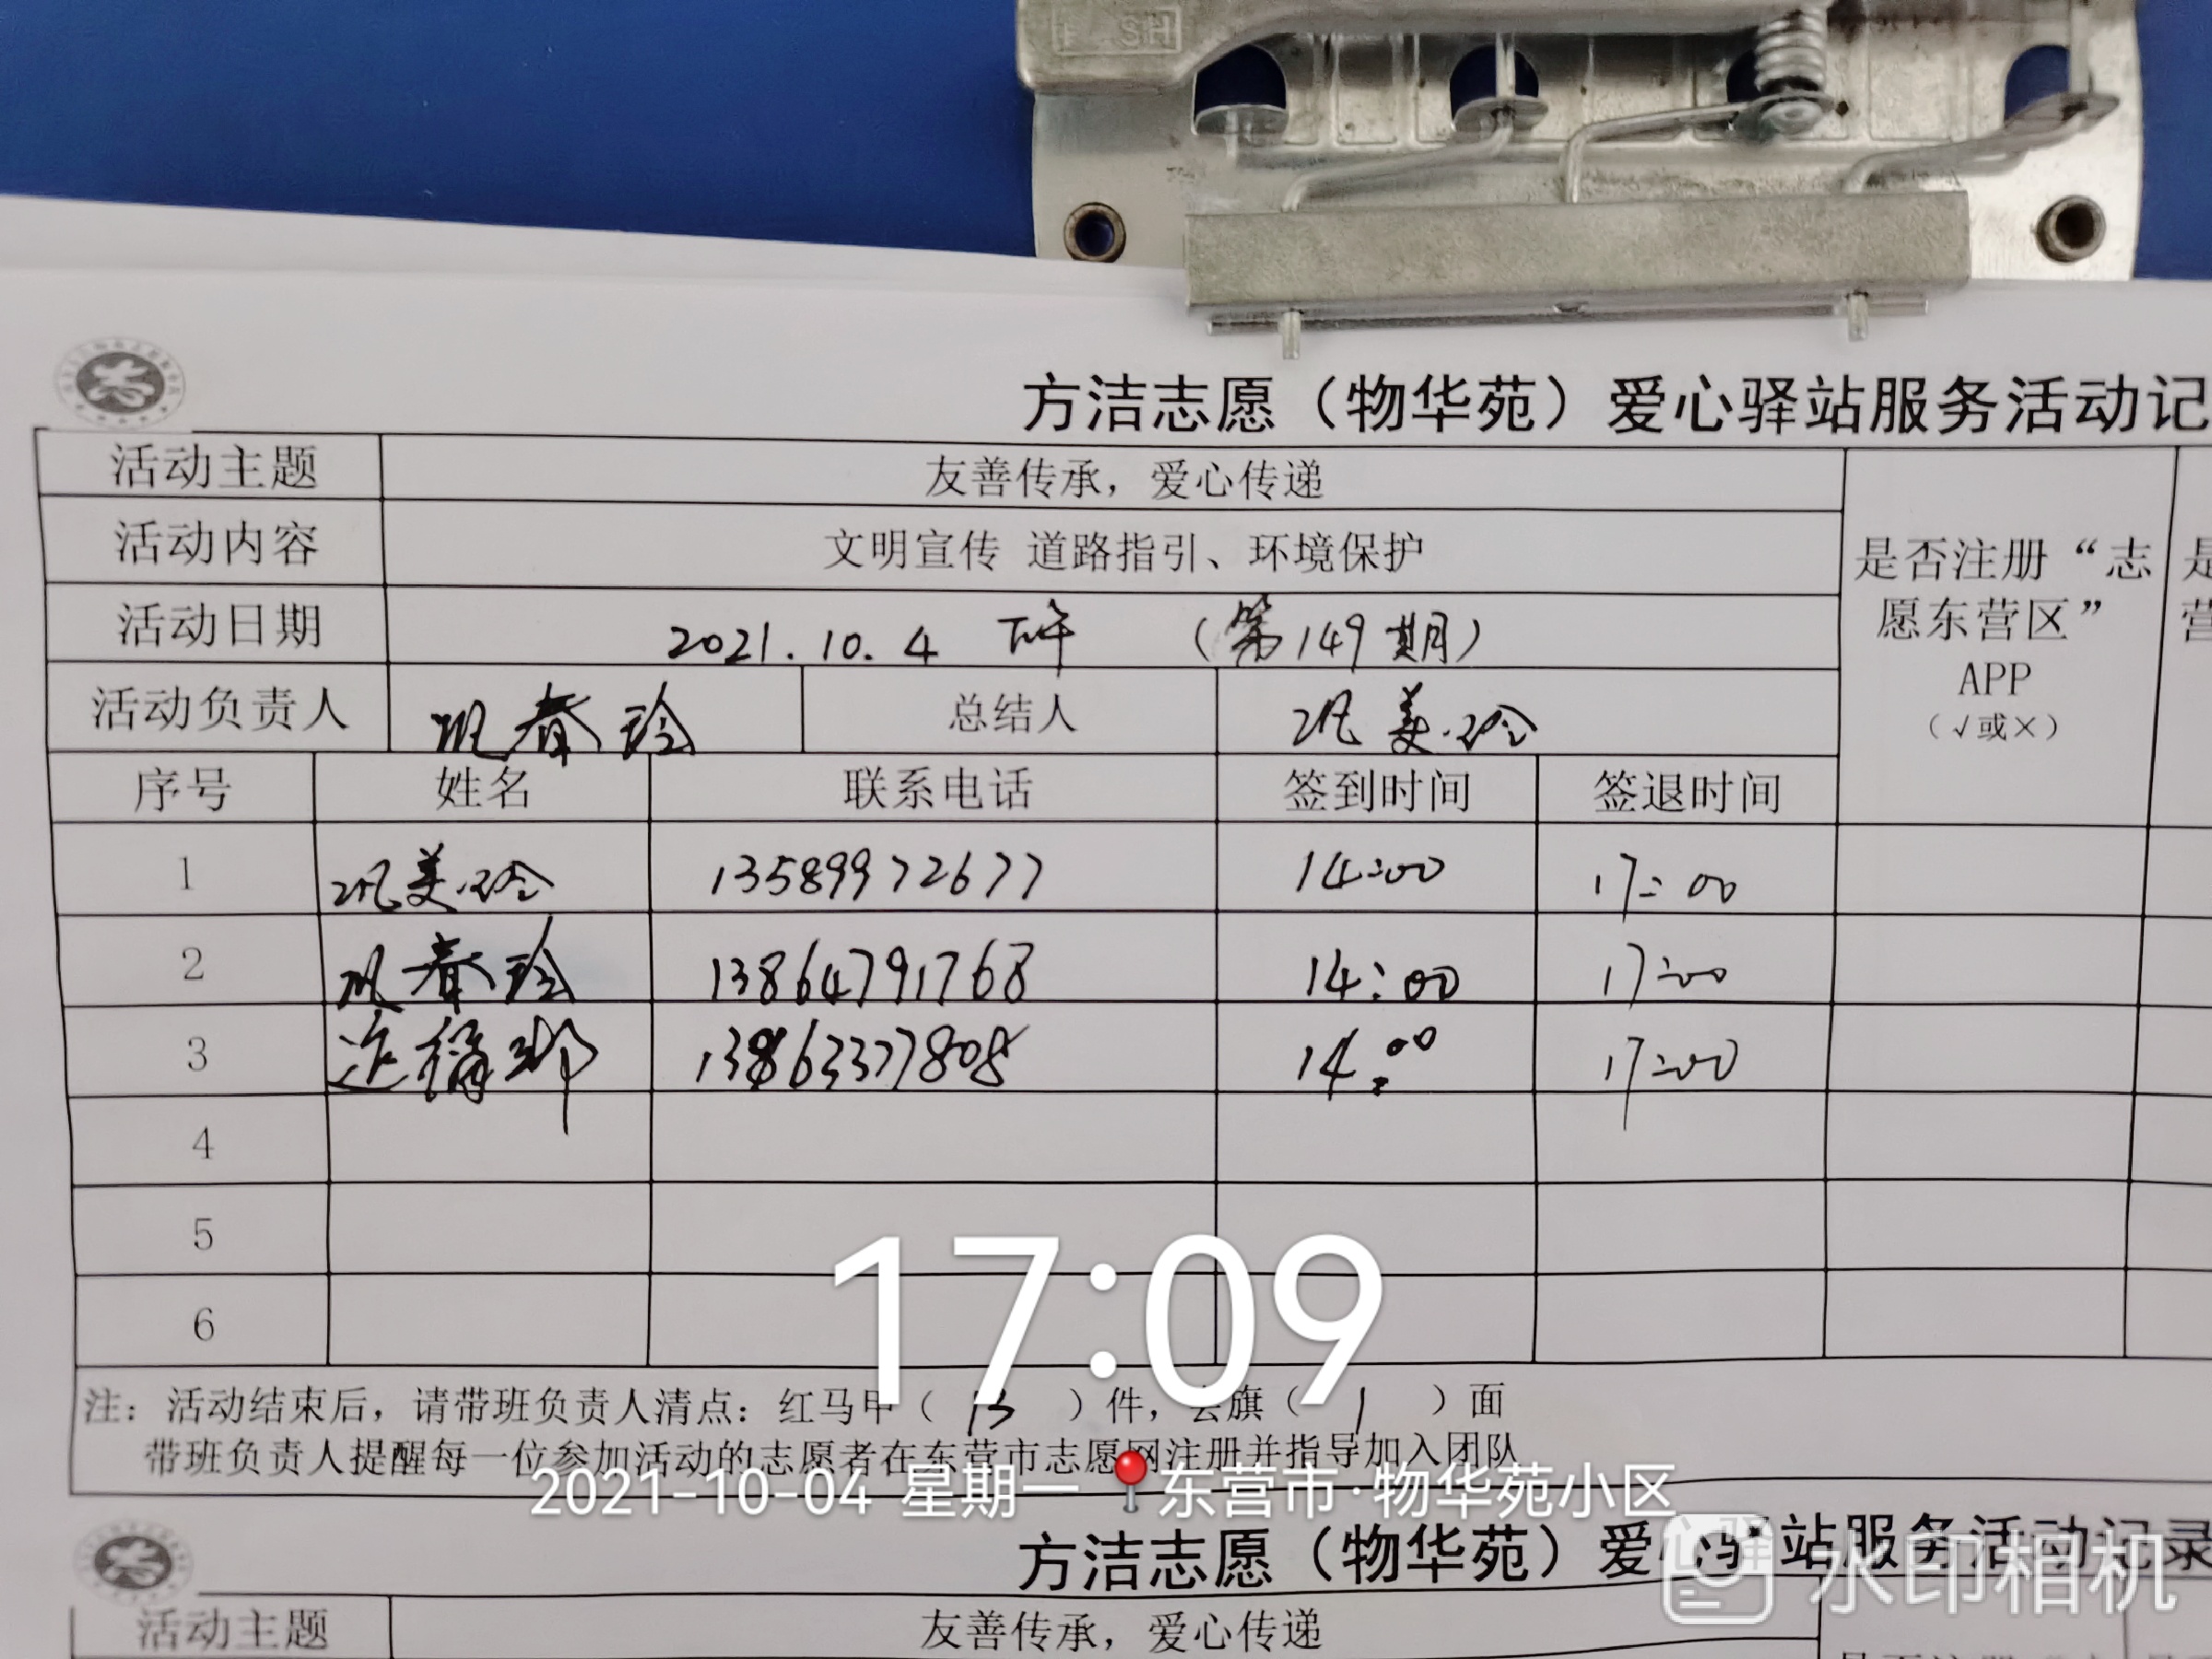 方洁志愿（物华苑）爱心驿站服务活动记
活动主题 友善传承，爱心传递
活动内容 文明宣传 道路指引、环境保护
是否注册“志愿东营区”APP（√或×）
活动日期 2021.10.4 下午 （第149期）
活动负责人 巩春玲 总结人 巩美玲
序号 姓名 联系电话 签到时间 签退时间
1 巩美玲 13589972677 14:00 17:00
2 巩春玲 13864791768 14:00 17:00
3 13863377808 14:00 17:00
4
5
6
17:09
注：活动结束后，请带班负责人清点：红马甲（13）件，会旗（1）面
带班负责人提醒每一位参加活动的志愿者在东营市志愿网注册并指导加入团队
2021-10-04 星期一 东营市·物华苑小区
方洁志愿（物华苑）爱心驿站服务活动记录
水印相机
活动主题 友善传承，爱心传递